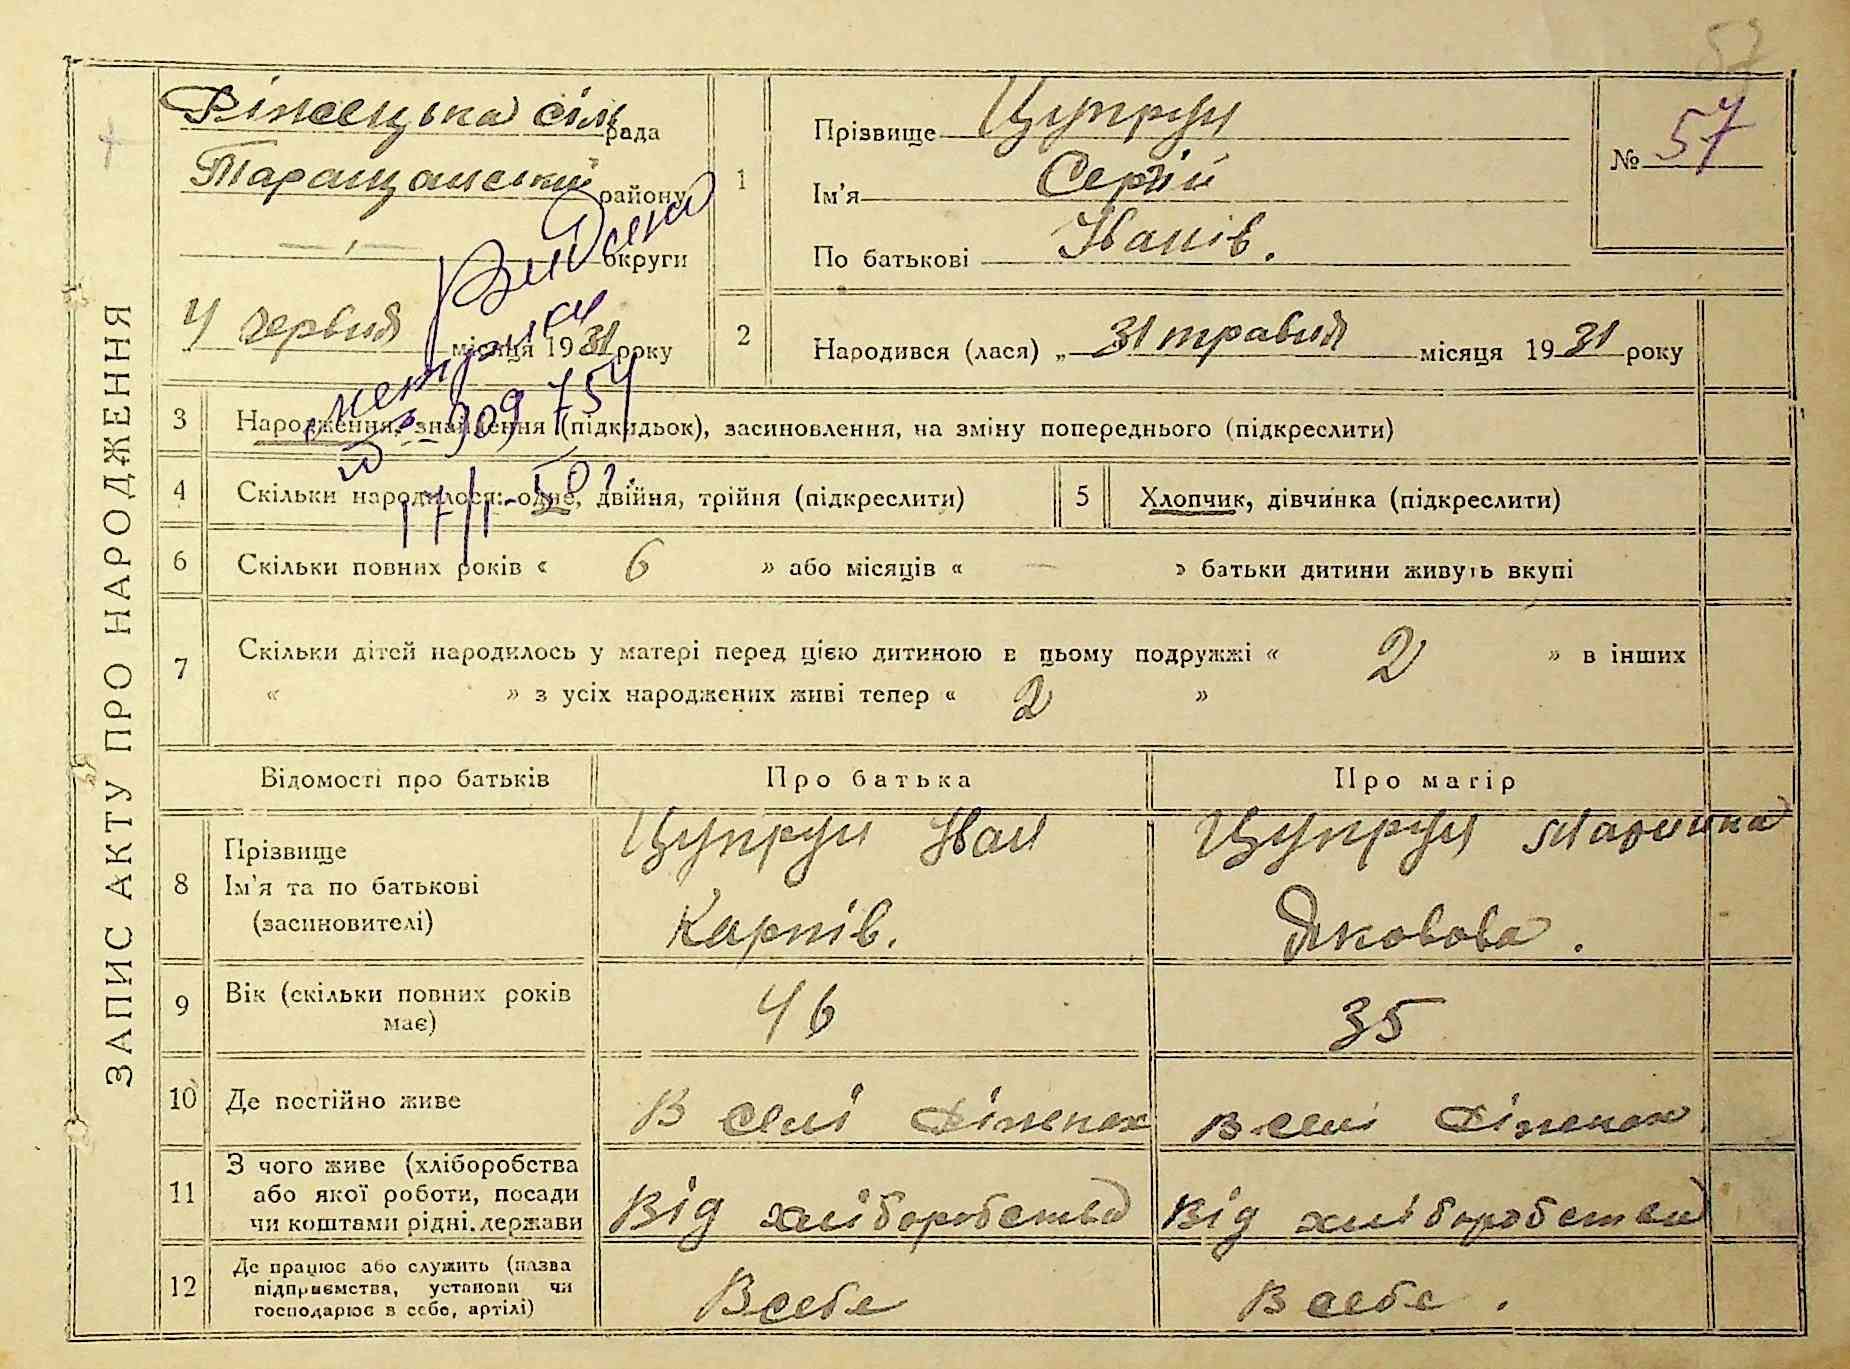 57
ЗАПИС АКТУ ПРО НАРОДЖЕННЯ
сіль рада
Таращанський району
— „ — округи
4 червня місяця 1931 року
Видано
метрику
909754
17/I-50 г.
1
Прізвище Цупрун
Ім'я Сергій
По батькові Іванів.
№ 57
2
Народився (лася) „ 31 травня місяця 1931 року
3 Народження, знайдення (підкидьок), засиновлення, на зміну попереднього (підкреслити)
4 Скільки народилося: одне, двійня, трійня (підкреслити)
5 Хлопчик, дівчинка (підкреслити)
6 Скільки повних років « 6 » або місяців « — » батьки дитини живуть вкупі
7 Скільки дітей народилось у матері перед цією дитиною в цьому подружжі « 2 » в інших
« » з усіх народжених живі тепер « 2 »
Відомості про батьків Про батька Про матір
8 Прізвище
Ім'я та по батькові
(засиновителі)
Цупрун Іван
Карпів.
Цупрун Марина
Яковова.
9 Вік (скільки повних років
має)
46
35
10 Де постійно живе
В селі
В селі
11 З чого живе (хліборобства
або якої роботи, посади
чи коштами рідні, держави
Від хліборобства
Від хліборобства
12 Де працює або служить (назва
підприємства, установи чи
господарює в себе, артілі)
В себе
В себе.